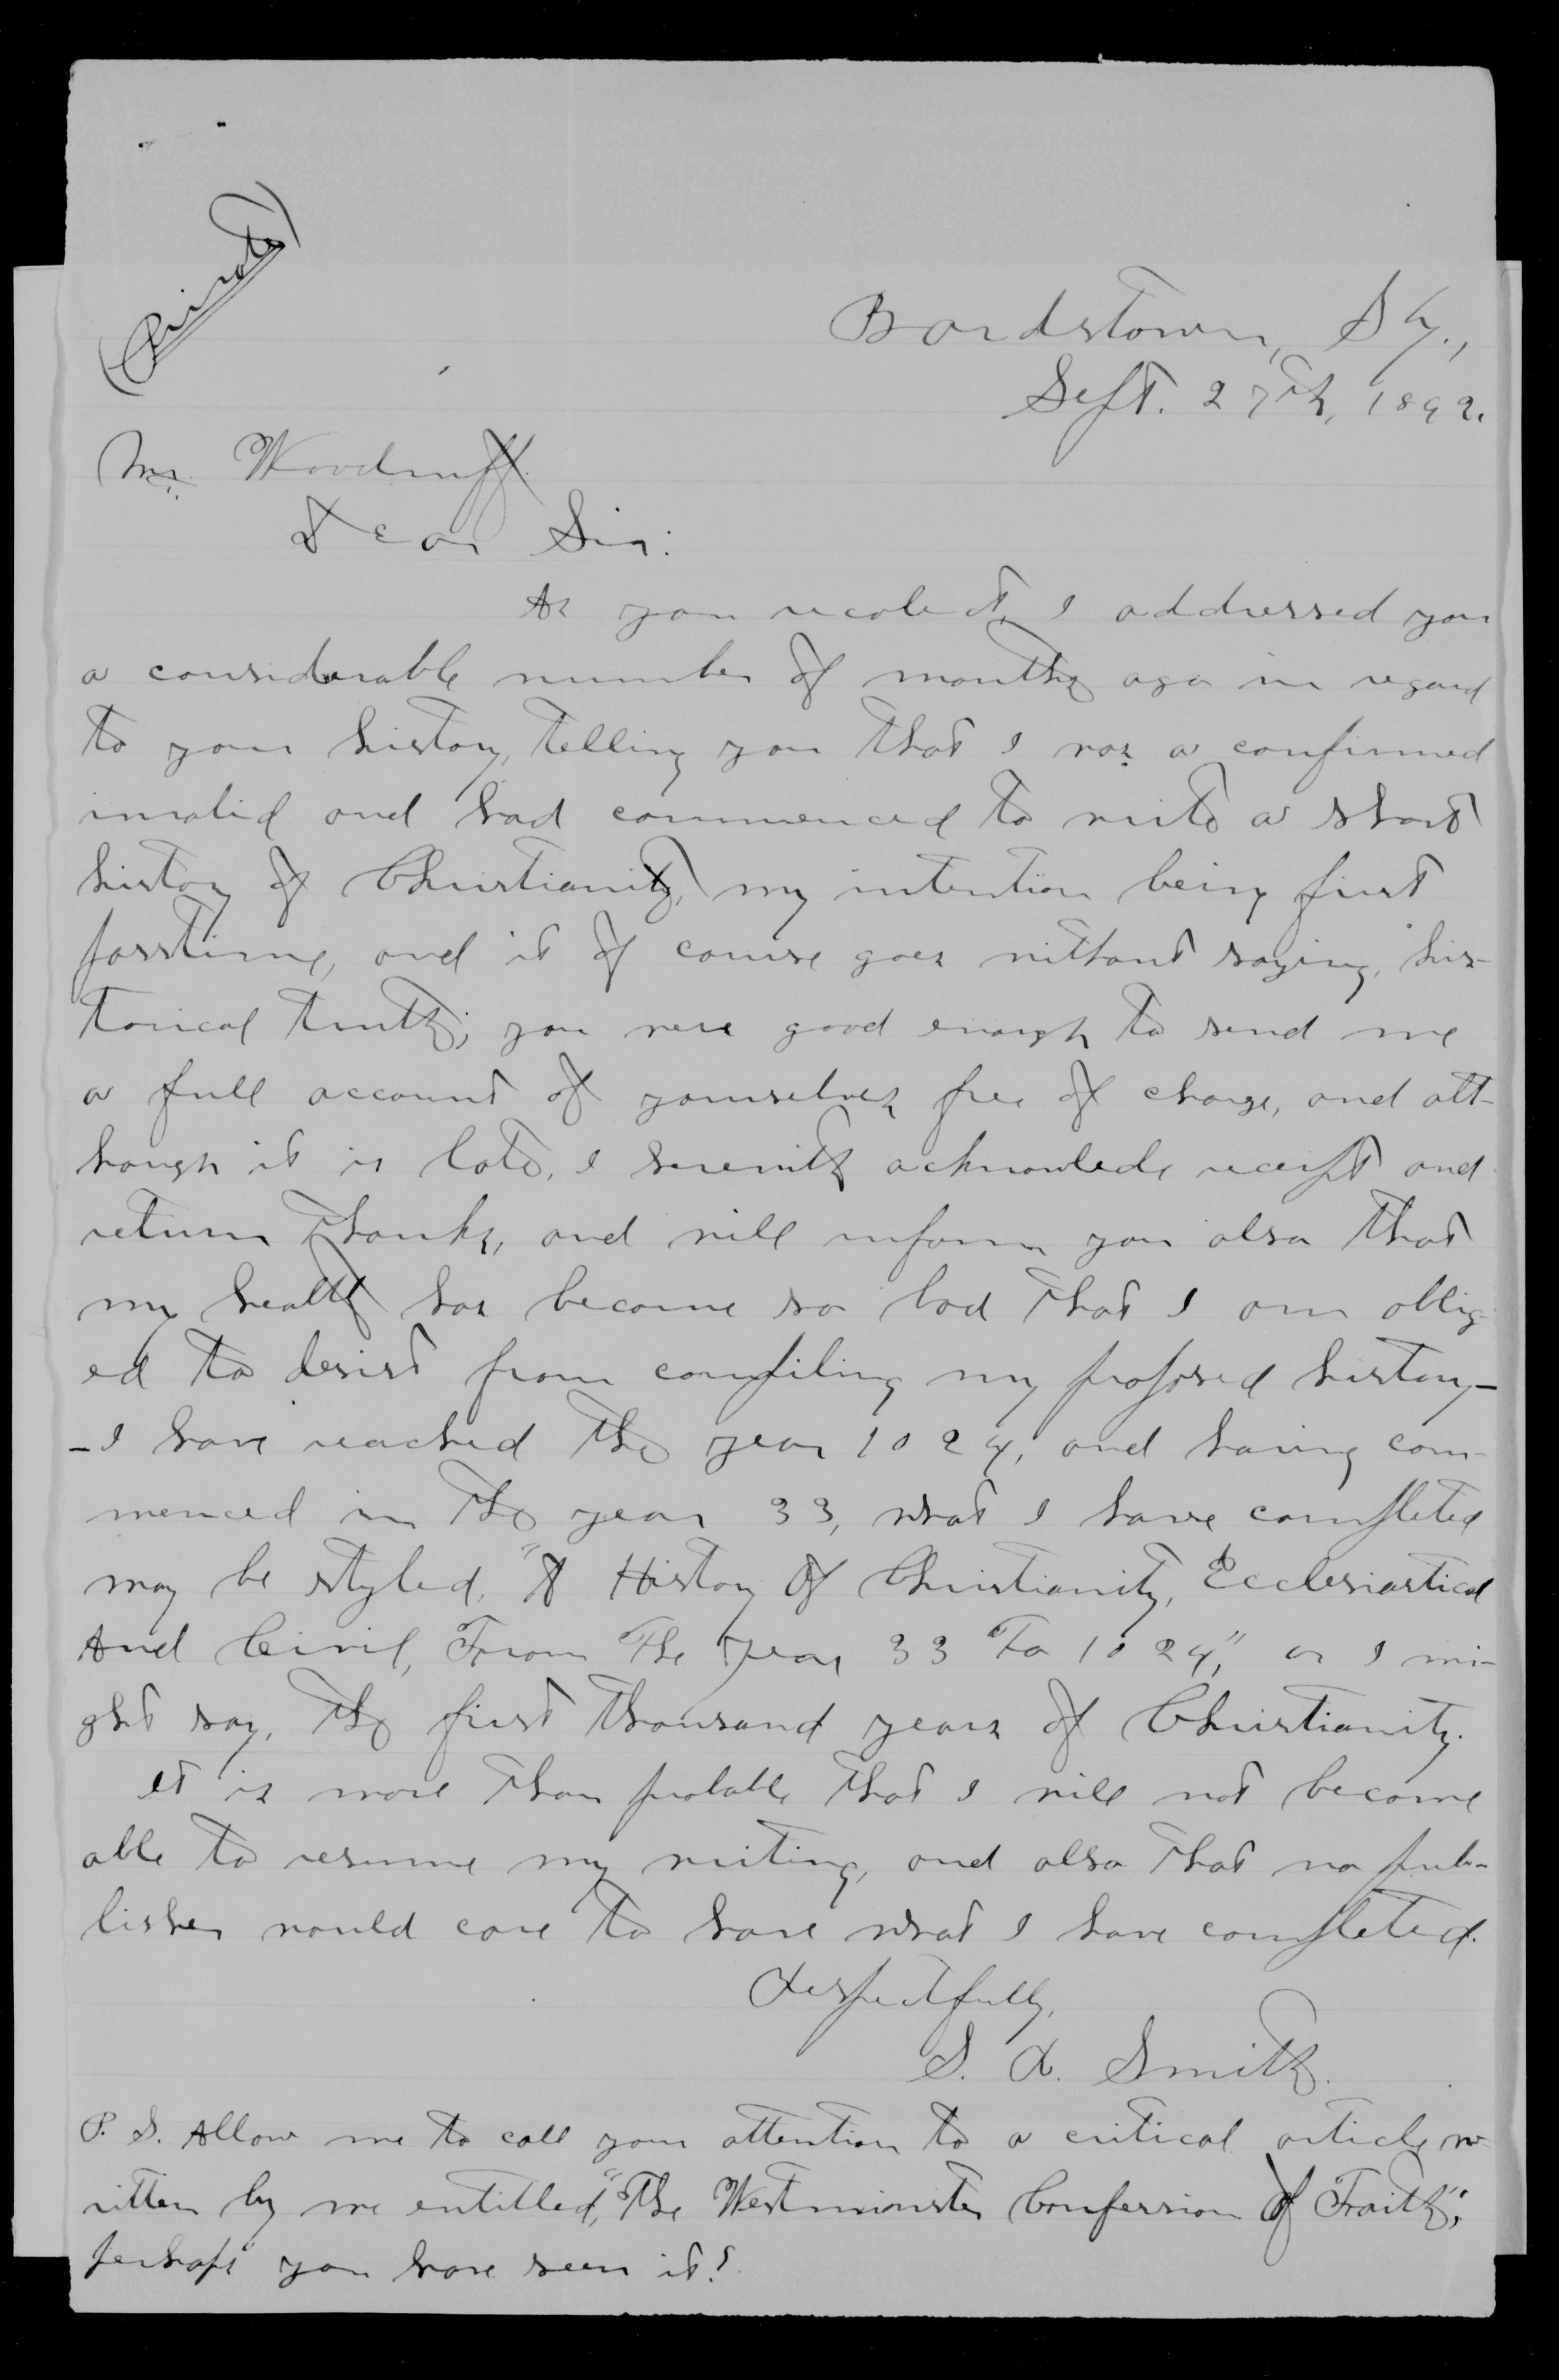 (Private)
Bardstown, Ky.,
Sept. 27th, 1892.
Mr. Woodruff.
Dear Sir:
As you recolect, I addressed you
a considerable number of months ago in regard
to your history, telling you that I was a confirmed
invalid and had commenced to write a short
history of Christianity, my intention being first
passtime, and it of course goes without saying, his-
torical truth; you were good enough to send me
a full account of yourselves free of charge, and alt-
hough it is late, I herewith acknowlede receipt and
return thanks, and will inform you also that
my health has become so bad that I am oblig-
ed to desist from compiling my proposed history—
—I have reached the year 1024, and having com-
menced in the year 33, what I have completed
may be styled, "A History Of Christianity, Ecclesiastical
And Civil, From The Year 33 To 1024," or I mi-
ght say, the first thousand years of Christianity.
It is more than probable that I will not become
able to resume my writing, and also that no pub-
lisher would care to have what I have completed.
Respectfully,
S. R. Smith.
P. S. Allow me to call your attention to a critical article w-
ritten by me entitled, "The Westminster Confession Of Faith";
perhaps you have seen it?